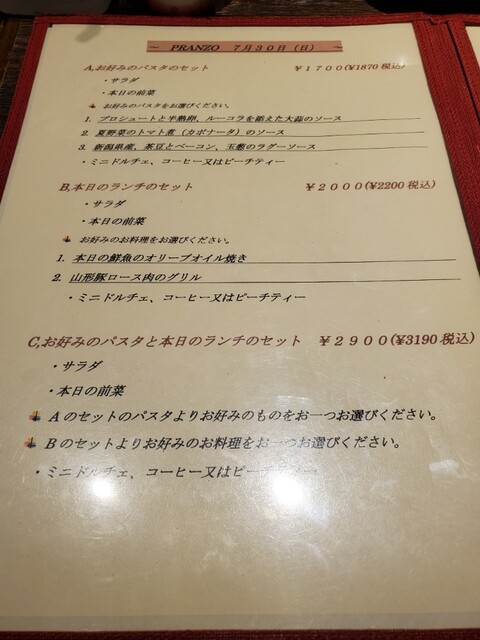 ～ PRANZO 7月30日（日） ～
A,お好みのパスタのセット ￥1700(¥1870税込)
・サラダ
・本日の前菜
お好みのパスタをお選びください。
1. プロシュートと半熟卵、ルーコラを添えた大蒜のソース
2. 夏野菜のトマト煮（カポナータ）のソース
3. 新潟県産、茶豆とベーコン、玉葱のラグーソース
・ミニドルチェ、コーヒー又はピーチティー
B,本日のランチのセット ￥2000(¥2200税込)
・サラダ
・本日の前菜
お好みのお料理をお選びください。
1. 本日の鮮魚のオリーブオイル焼き
2. 山形豚ロース肉のグリル
・ミニドルチェ、コーヒー又はピーチティー
C,お好みのパスタと本日のランチのセット ￥2900(¥3190税込)
・サラダ
・本日の前菜
Aのセットのパスタよりお好みのものをお一つお選びください。
Bのセットよりお好みのお料理をお一つお選びください。
・ミニドルチェ、コーヒー又はピーチティー